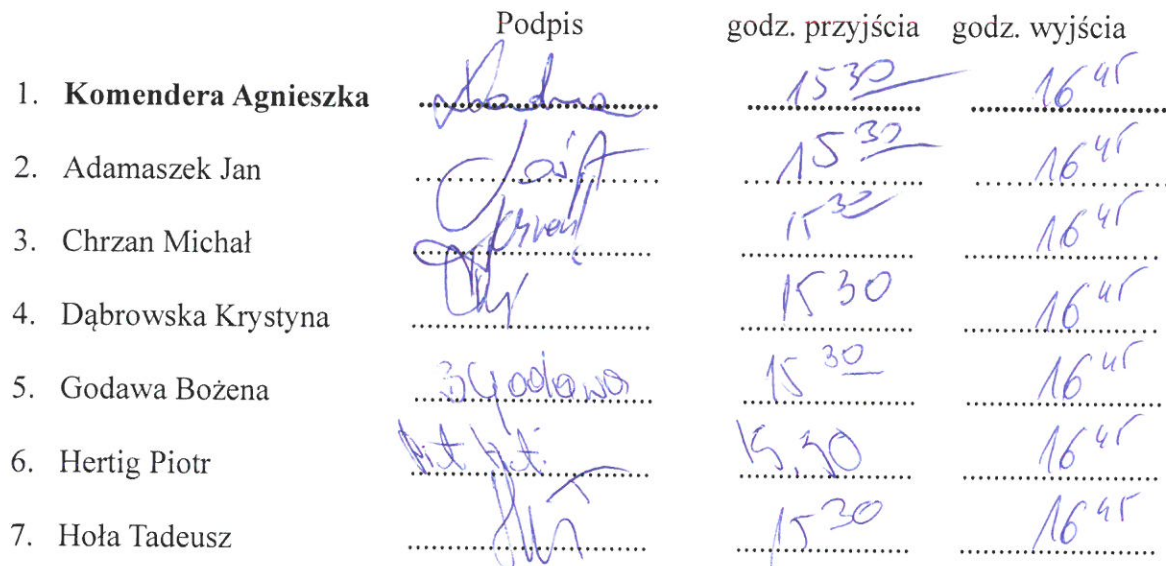 Podpis godz. przyjścia godz. wyjścia
1. Komendera Agnieszka 15 30 16 45
2. Adamaszek Jan 15 30 16 45
3. Chrzan Michał 15 30 16 45
4. Dąbrowska Krystyna 15 30 16 45
5. Godawa Bożena BGodawa 15 30 16 45
6. Hertig Piotr 15.30 16 45
7. Hoła Tadeusz 15 30 16 45